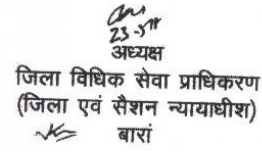 अध्यक्ष
जिला विधिक सेवा प्राधिकरण
(जिला एवं सैशन न्यायाधीश)
बारां